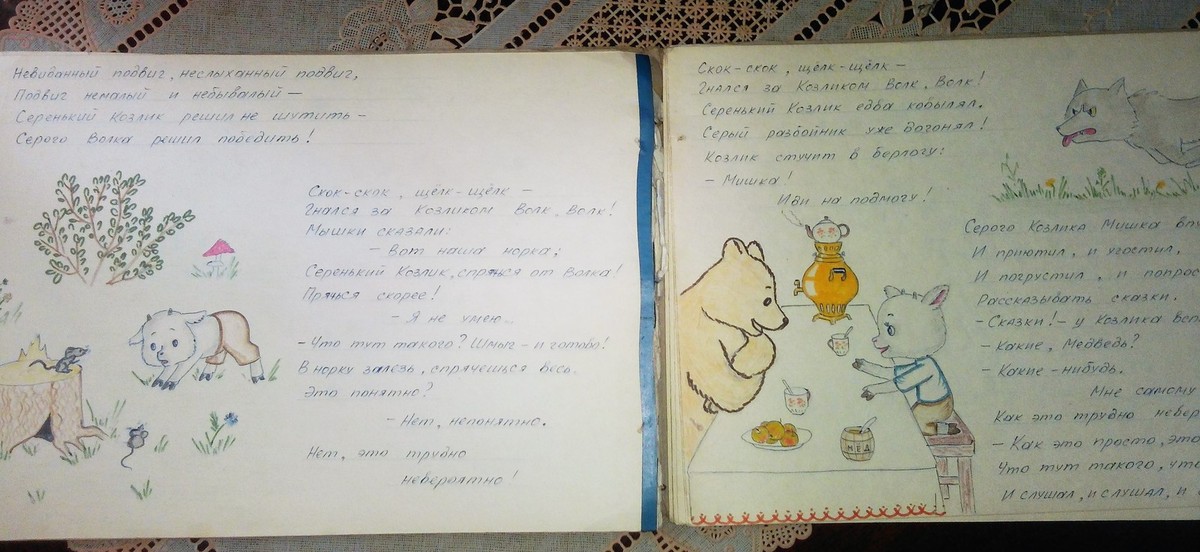 Невиданный подвиг, неслыханный подвиг,
Подвиг немалый и небывалый —
Серенький Козлик решил не шутить —
Серого Волка решил победить!
Скок-скок, щёлк-щёлк —
Гнался за Козликом Волк, Волк!
Мышки сказали:
— Вот наша норка;
Серенький Козлик, спрячься от Волка!
Прячься скорее!
— Я не умею...
— Что тут такого? Шмыг — и готово!
В норку залезь, спрячешься весь.
Это понятно?
— Нет, непонятно.
Нет, это трудно
невероятно!
Скок-скок, щёлк-щёлк —
Гнался за Козликом Волк, Волк!
Серенький Козлик едва кобылял.
Серый разбойник уже догонял!
Козлик стучит в берлогу:
— Мишка!
Иди на подмогу!
Серого Козлика Мишка
И приютил, и угостил,
И погрустил, и
Рассказывать сказки.
— Сказки! — у Козлика
— Какие, Медведь?
— Какие-нибудь.
Мне самому
Как это трудно
— Как это просто,
Что тут такого,
И слушал, и слушал, и
МЕД